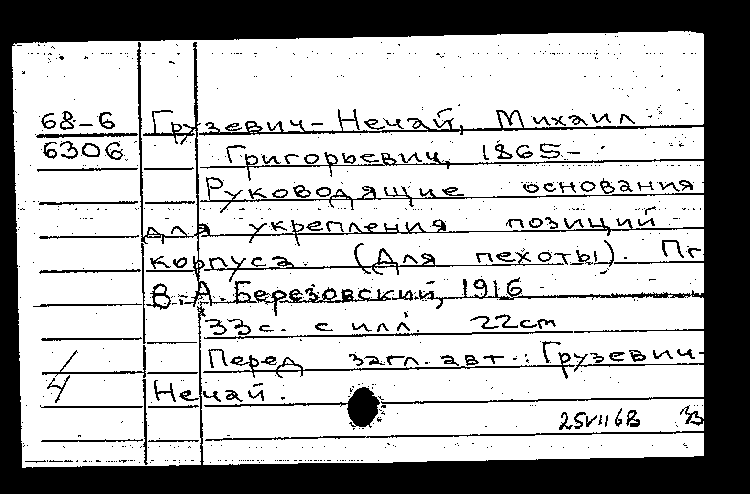 68-6 Грузевич-Нечай, Михаил
6306 Григорьевич, 1865-
Руководящие основания
для укрепления позиций
корпуса. (Для пехоты). Пг
В.А. Березовский, 1916
33 с. с илл. 22 cm
Перед загл. авт.: Грузевич-
Нечай.
25VII68